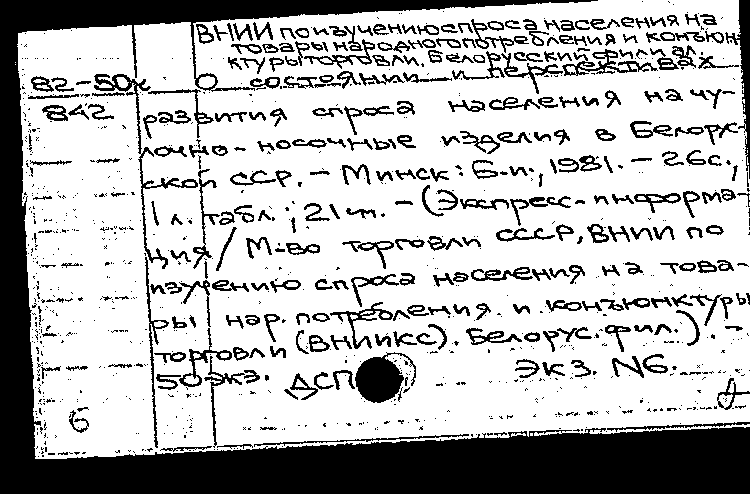 ВНИИ по изучению спроса населения на
товары народного потребления и конъюн-
ктуры торговли. Белорусский филиал.
82-50к О состоянии и перспективах
842 развития спроса населения на чу-
лочно-носочные изделия в Белорус-
ской ССР. - Минск: Б.и., 1981. - 26с.,
1 л. табл.; 21 см. - (Экспресс-информа-
ция / М-во торговли СССР, ВНИИ по
изучению спроса населения на това-
ры нар. потребления и конъюнктуры
торговли (ВНИИКС). Белорус. фил.). -
50 экз. ДСП экз. N6.
б